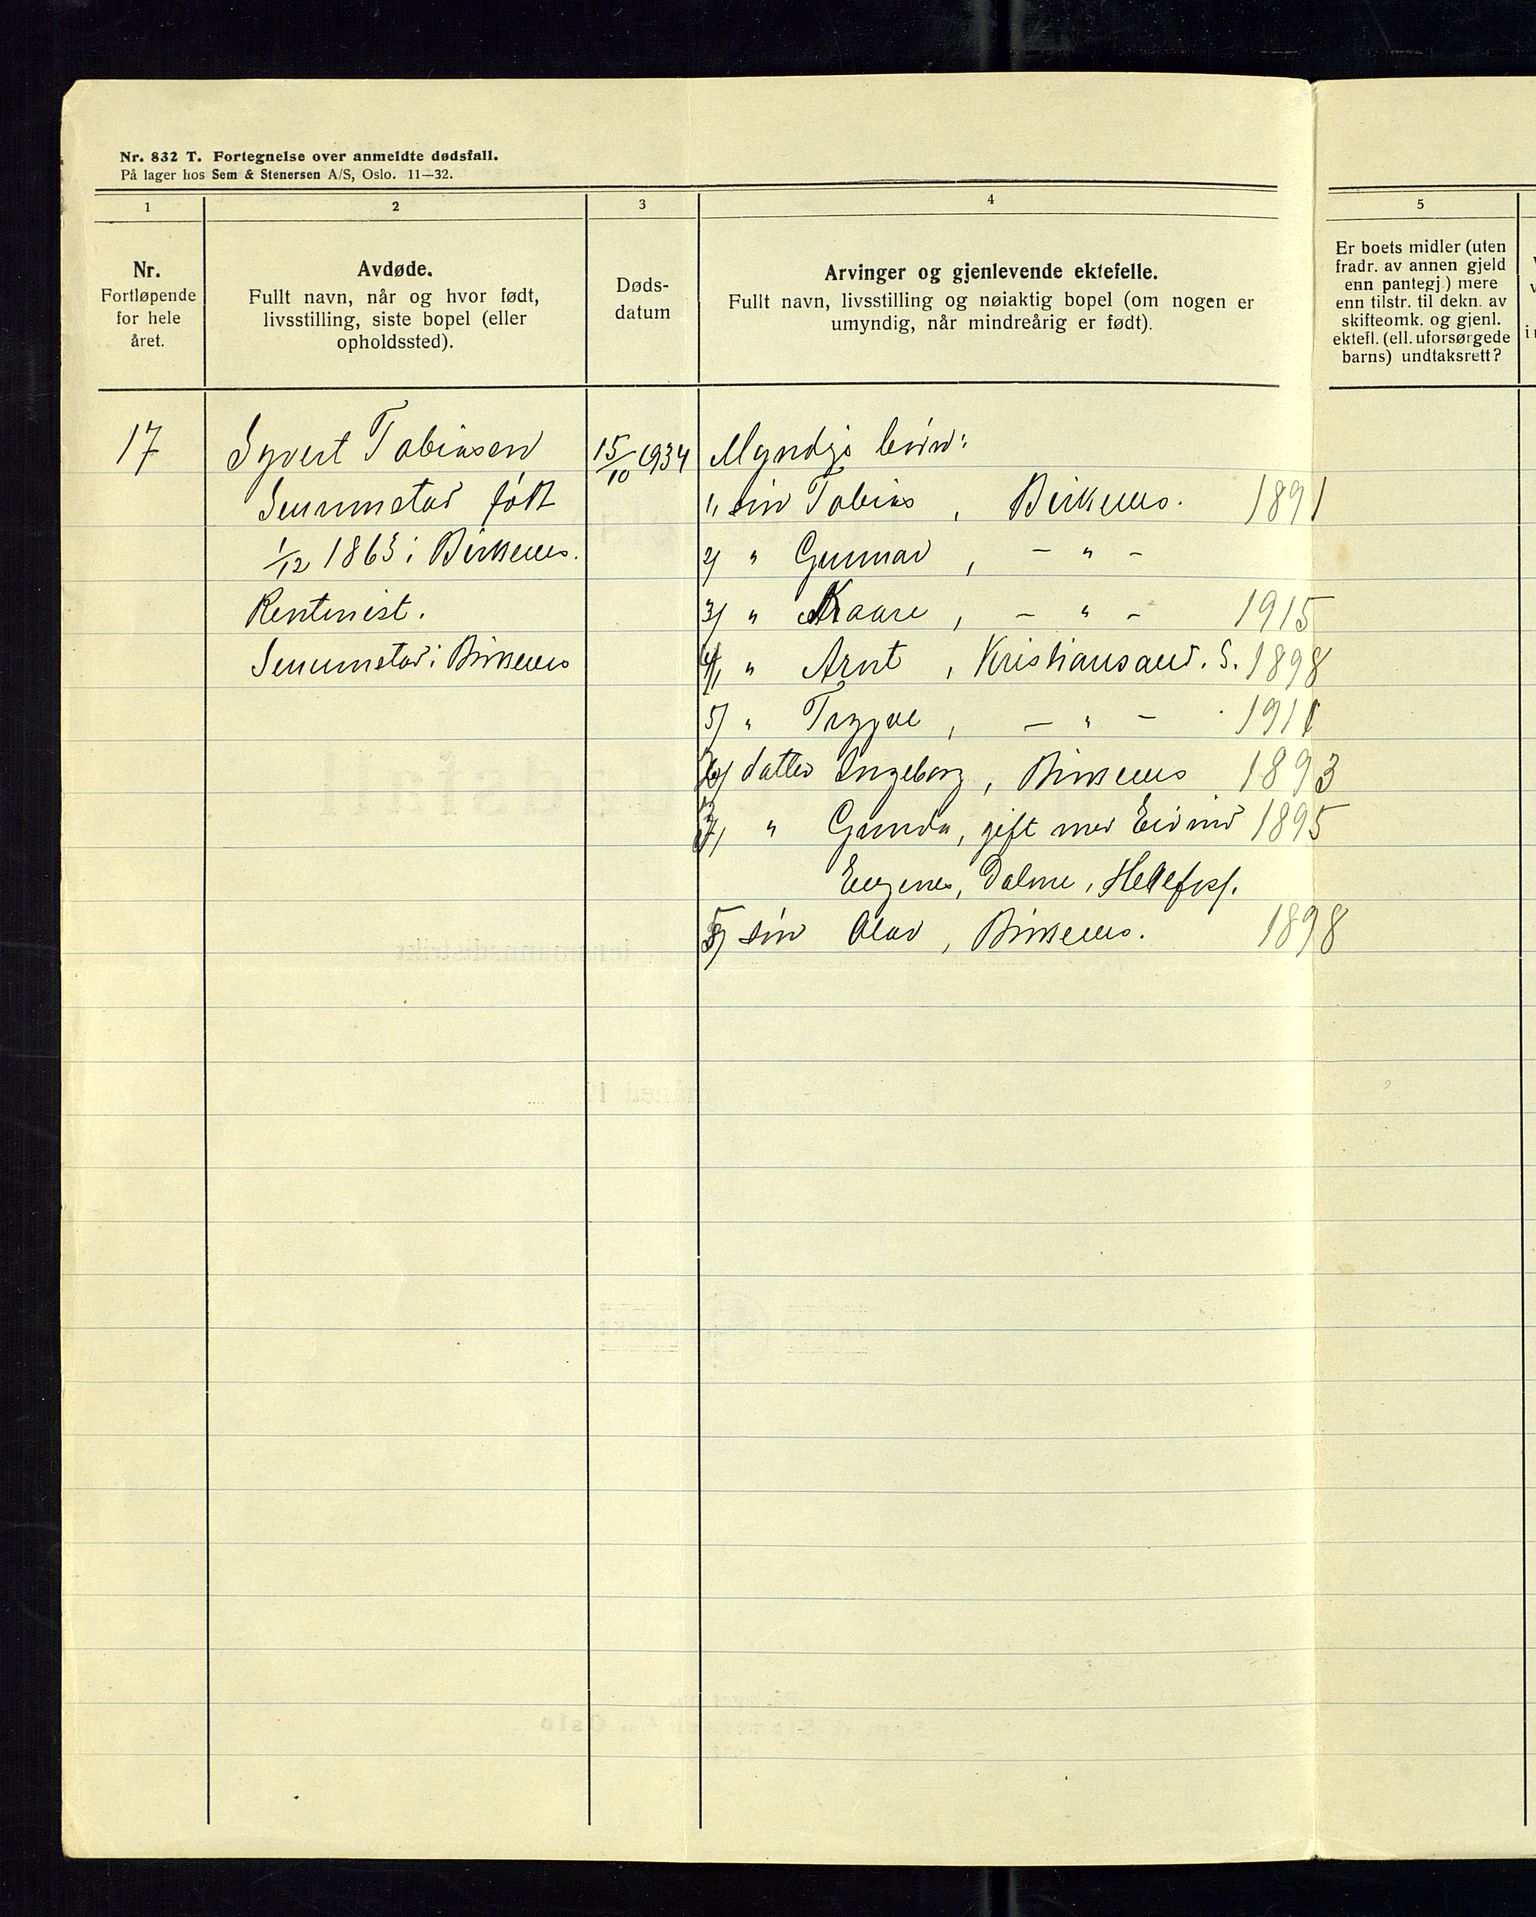 Nr. 832 T. Fortegnelse over anmeldte dødsfall.
På lager hos Sem & Stenersen A/S, Oslo. 11—32.
1
2
3
4
5
Nr.
Fortløpende
for hele
året.
Avdøde.
Fullt navn, når og hvor født,
livsstilling, siste bopel (eller
opholdssted).
Døds-
datum
Arvinger og gjenlevende ektefelle.
Fullt navn, livsstilling og nøiaktig bopel (om nogen er
umyndig, når mindreårig er født).
Er boets midler (uten
fradr. av annen gjeld
enn pantegj.) mere
enn tilstr. til dekn. av
skifteomk. og gjenl.
ektefl. (ell. uforsørgede
barns) undtaksrett?
17
Syvert Tobiasen
født
1/12 1863 i Birkenes.
Rentenist.
i Birkenes
15/10 1934
Myndige barn:
1, søn Tobias, Birkenes. 1891
2/ " Gunnar, - " -
3/ " Kaare, - " - 1915
4/ " Arnt, Kristiansand. S. 1898
5/ " Trygve, - " - 1911
6/ datter Ingeborg, Birkenes 1893
7/ " Gunda, gift med Eivind 1895
Dalane, Hellefoss.
8/ søn Olav, Birkenes. 1898